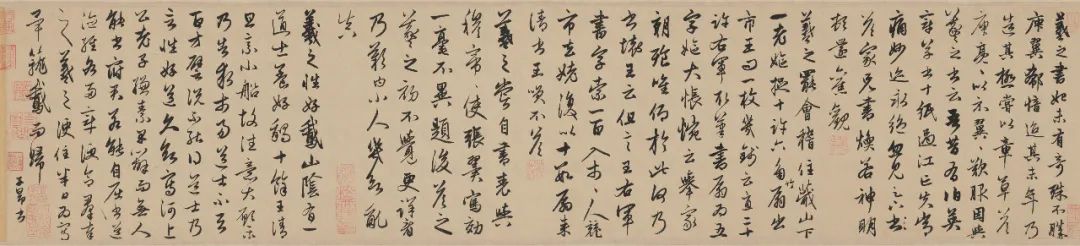 羲之書初未有奇殊不勝
庾翼郗愔迨其末年乃
造其極嘗以章草答
庾亮亮以示翼翼歎服因與
羲之書云吾昔有伯英
章草書十紙過江亡失常
痛妙迹永絕忽見足下書
答家兄書煥若神明
頓還舊觀
羲之罷會稽住蕺山下
一老嫗捉十許六角竹扇出
市王問一枚幾錢云直二十
許右軍取筆書扇扇為五
字嫗大悵惋云舉家
朝飡唯仰於此何乃
書壞王云但言王右軍
書字索一百入市市人競
市去姥復以十數扇來
請書王笑不答
羲之嘗自書表與
穆帝帝使張翼寫効
一毫不異題後答之
羲之初不覺更詳看
乃歎曰小人幾欲亂
真
羲之性好鵝山陰有一
道士養好鵝十餘王清
旦乘小船故往意大願樂
乃告求市易道士不與
百方譬說不能得道士乃
言性好道久欲寫河上
公老子縑素早辦而無人
能書府君若能自屈書道
德經各兩章便合羣奉
之羲之便住半日為寫
畢籠鵝而歸
子昂書